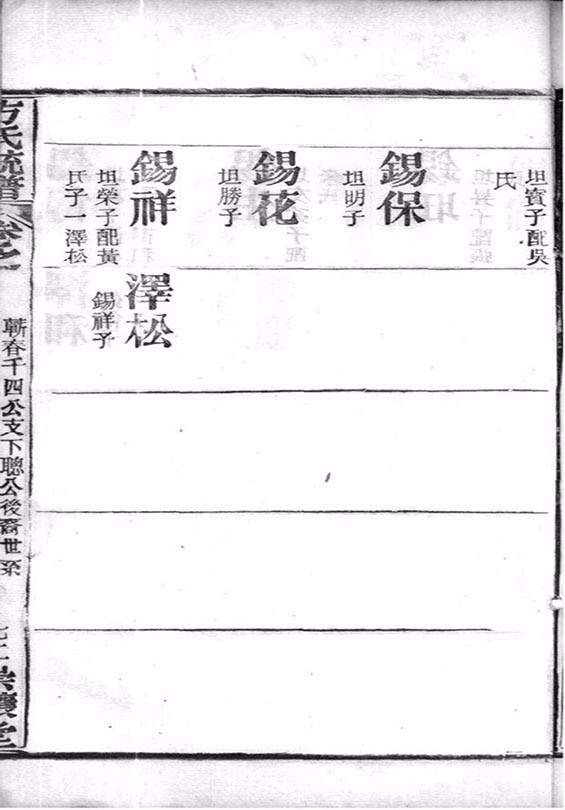 坦賓子配吳
氏
錫保
坦明子
錫花
坦勝子
錫祥
坦榮子配黃
氏子一澤松
澤松
錫祥子
方氏統譜
卷之一
蘄春千四公支下聰公後裔世系
堂